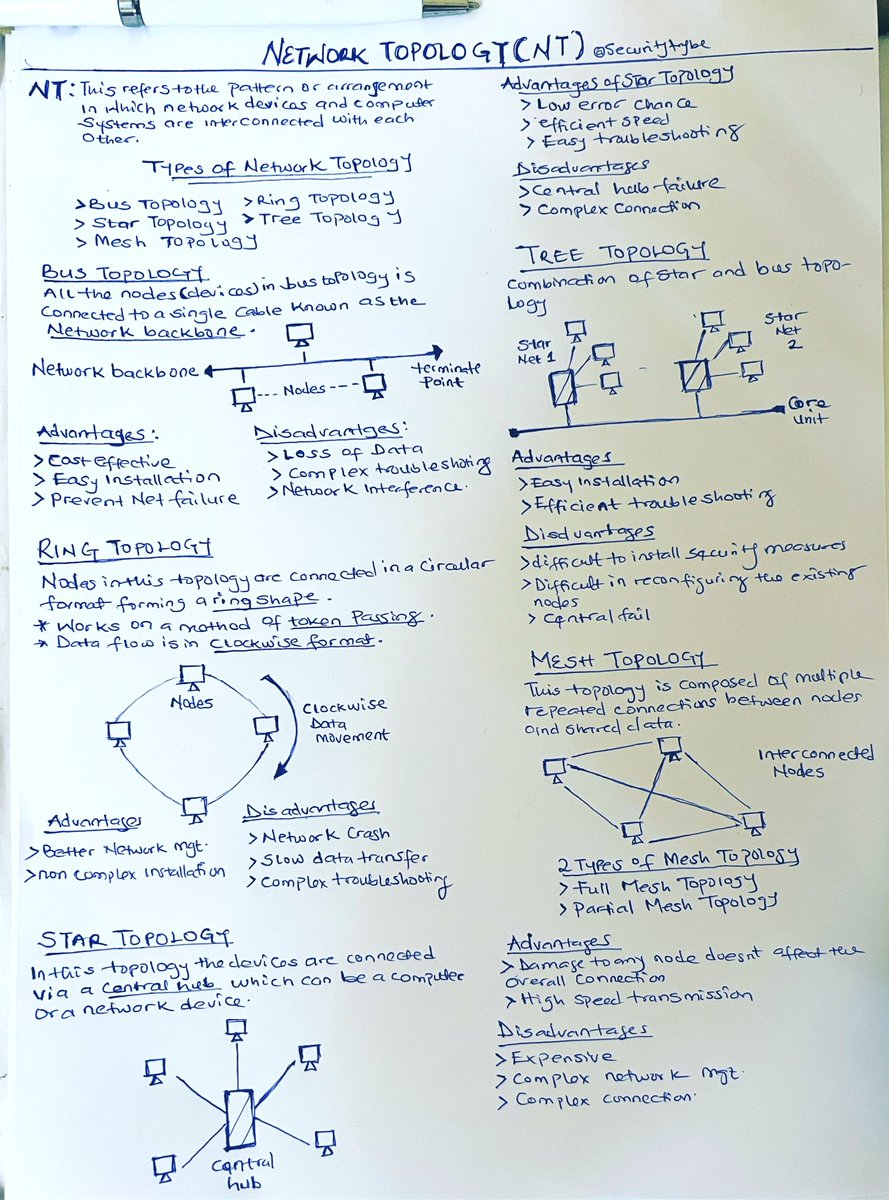 NETWORK TOPOLOGY(NT) @Securitytybe
NT: This refers to the pattern or arrangement
in which network devices and computer
Systems are interconnected with each
Other.
Types of Network Topology
> Bus Topology > Ring Topology
> Star Topology > Tree Topology
> Mesh Topology
BUS TOPOLOGY
All the nodes(devices) in bus topology is
Connected to a single Cable known as the
Network backbone.
Network backbone
Nodes
terminate
Point
Advantages:
> Cost effective
> Easy Installation
> Prevent Net failure
Disadvantges:
> Loss of Data
> Complex troubleshoting
> Network Interference.
RING TOPOLOGY
Nodes in this topology are connected in a Circular
format forming a ring shape.
* Works on a method of token Passing.
* Data flow is in Clockwise format.
Nodes
Clockwise
Data
Movement
Advantages
> Better Network mgt.
> non Complex installation
Disadvantages
> Network Crash
> Slow data transfer
> Complex troubleshooting
STAR TOPOLOGY
In this topology the devices are connected
via a Central hub which can be a computer
Or a network device.
Central
hub
Advantages of Star Topology
> Low error chance
> efficient speed
> Easy troubleshooting
Disadvantages
> Central hub failure
> Complex Connection
TREE TOPOLOGY
Combination of Star and bus topo-
logy
Star
Net 1
Star
Net
2
Core
Unit
Advantages
> Easy Installation
> Efficient troubleshooting
Disdvantages
> difficult to install security measures
> Difficult in reconfiguring the existing
nodes
> Central fail
MESH TOPOLOGY
This topology is composed of multiple
repeated connections between nodes
and shared data.
Interconnected
Nodes
2 Types of Mesh Topology
> Full Mesh Topology
> Partial Mesh Topology
Advantages
> Damage to any node doesnt affect the
Overall Connection
> High speed transmission
Disadvantages
> Expensive
> Complex network mgt.
> Complex connection.